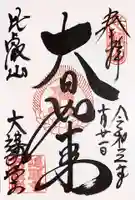 奉拝
令和三年
十月廿一日
大日如来
比叡山
大講堂